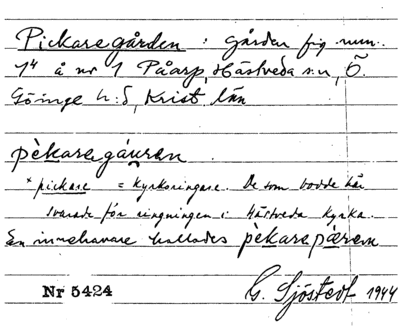 Pickaregården : gården fig. num.
1⁴ å nr 1 Påarp, Hästveda sn, Ö.
Göinge h:d, Krist. län
pèkaregáuren
* pickare = kyrkoringare. De som bodde här
svarade för ringningen i Hästveda kyrka.
En innehavare kallades pèkarepären
Nr 5424 G. Sjöstedt 1944